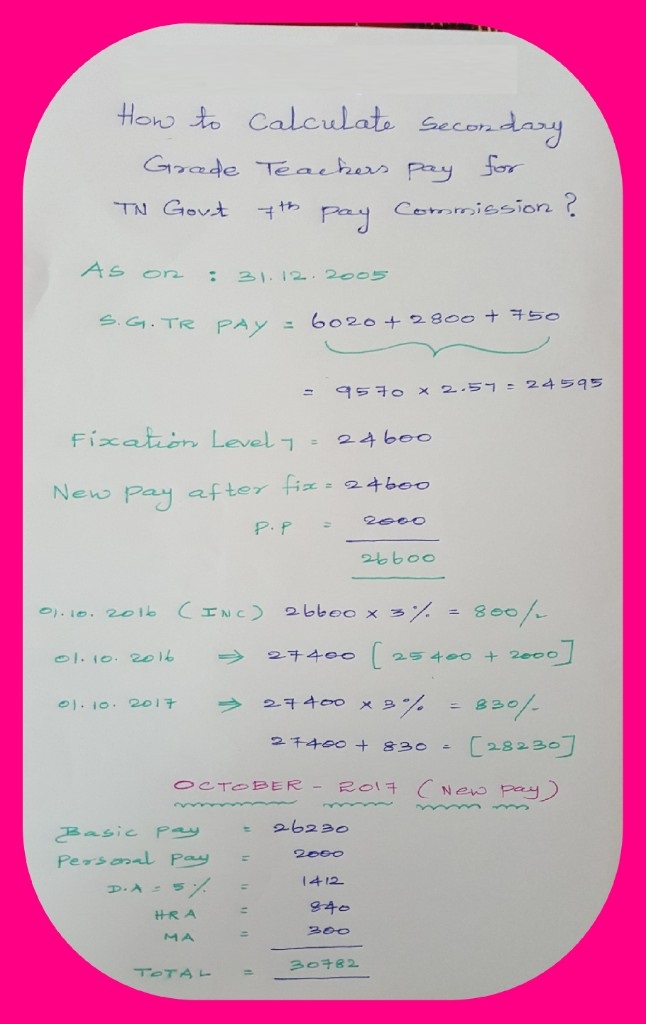 How to Calculate Secondary
Grade Teachers pay for
TN Govt 7th pay Commission?
As on : 31.12.2005
S.G.TR PAY = 6020 + 2800 + 750
= 9570 x 2.57 = 24595
Fixation Level 7 = 24600
New pay after fix = 24600
P.P = 2000
26600
01.10.2016 (INC) 26600 x 3% = 800/-
01.10.2016 ⇒ 27400 [25400 + 2000]
01.10.2017 ⇒ 27400 x 3% = 830/-
27400 + 830 = [28230]
OCTOBER - 2017 (New pay)
Basic pay = 26230
Personal pay = 2000
D.A = 5% = 1412
HRA = 840
MA = 300
TOTAL = 30782